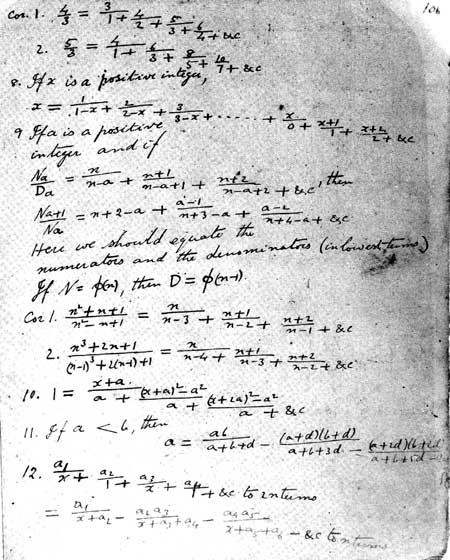 106
Cor. 1. 4/3 = 3/1 + 4/2 + 5/3 + 6/4 + &c
2. 5/3 = 4/1 + 6/3 + 8/5 + 10/7 + &c
8. If x is a positive integer,
x = 1/1-x + 2/2-x + 3/3-x + ...... + x/0 + x+1/1 + x+2/2 + &c
9 If a is a positive
integer and if
Na/Da = n/n-a + n+1/n-a+1 + n+2/n-a+2 + &c, then
Na+1/Na = n+2-a + a-1/n+3-a + a-2/n+4-a + &c
Here we should equate the
numerators and the denominators (in lowest terms.)
If N = φ(n), then D = φ(n-1).
Cor 1. n²+n+1/n²-n+1 = n/n-3 + n+1/n-2 + n+2/n-1 + &c
2. n³+2n+1/(n-1)³+2(n-1)+1 = n/n-4 + n+1/n-3 + n+2/n-2 + &c
10. 1 = x+a/a + (x+a)²-a²/a + (x+2a)²-a²/a + &c
11. If a < b, then
a = ab/a+b+d - (a+d)(b+d)/a+b+3d - (a+2d)(b+2d)/a+b+5d -
12. a₁/x + a₂/1 + a₃/x + a₄/1 + &c to 2n terms
= a₁/x+a₂ - a₂a₃/x+a₃+a₄ - a₄a₅/x+a₅+a₆ - &c to n terms